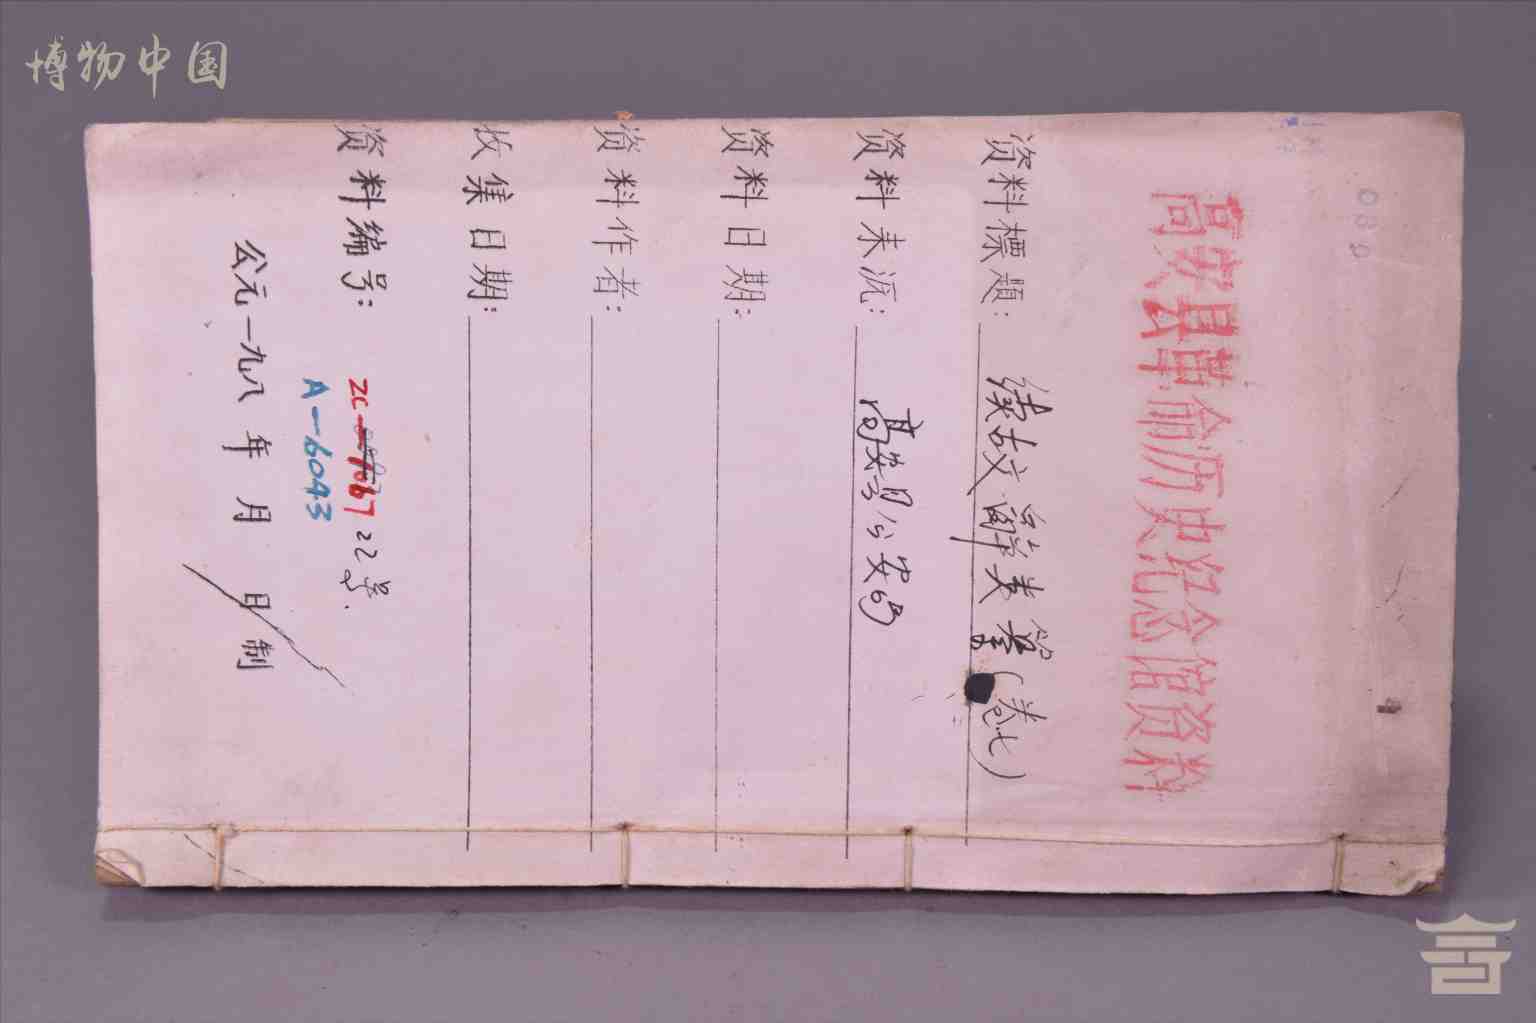 博物中国
高安县革命历史纪念馆资料
资料標題: 续古文辭类纂(卷七)
资料来源: 高安县公安局
资料日期:
资料作者:
收集日期:
资料编号: ZC—1067 22号.
A—6043
公元一九八 年 月 日制